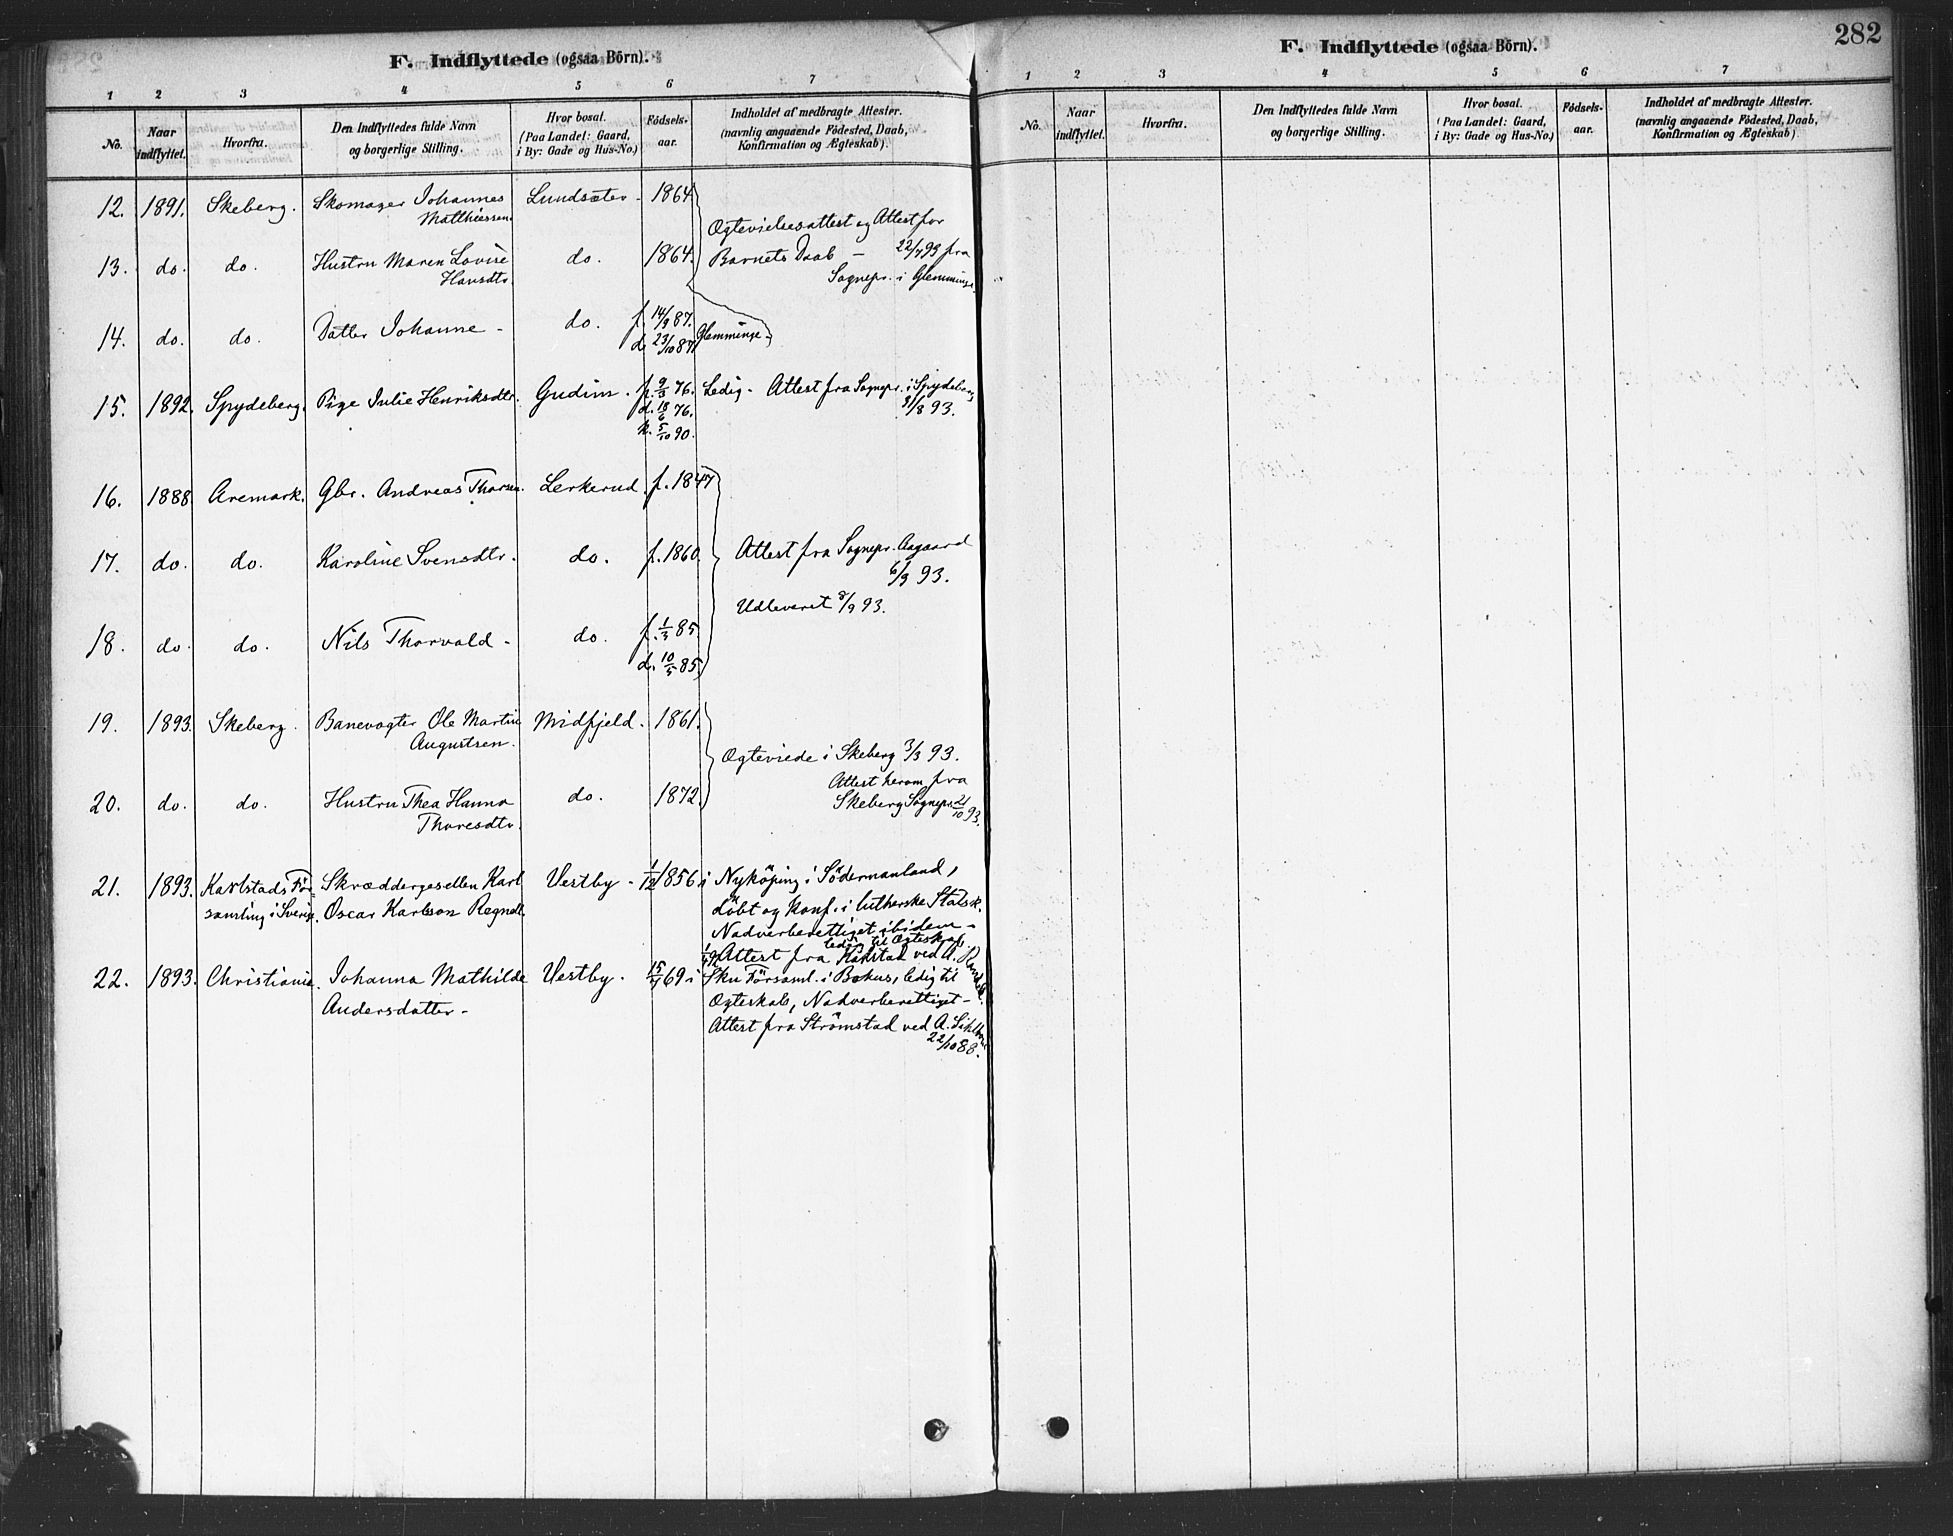 F. Indflyttede (ogsaa Börn).
1 2 3 4 5 6 7
No.
Naar indflyttet.
Hvorfra.
Den Indflyttedes fulde Navn og borgerlige Stilling.
Hvor bosat. (Paa Landet: Gaard, i By: Gade og Hus-No.)
Födsels-aar.
Indholdet af medbragte Attester. (navnlig angaaende Födested, Daab, Konfirmation og Ægteskab).
12. 1891. Skeberg. Skomager Johannes Lundsæter. 1864
Matthiessen.
Ogtevielsesattest og Attest for
13. do. do. Hustru Maren Lovise do. 1864. Barnets Daab – 22/7 93 fra
Hansdtr. Sognepr. i Glemminge.
14. do. do. Datter Johanne – do. f. 14/9 87. Glemminge.
d. 23/10 87
15. 1892. Spydeberg. Pige Julie Henriksdtr. Gudim. f. 9/3 76. Ledig. Attest fra Sognepr. i Spydeberg
d. 18/6 76. 31/8 93.
k. 5/10 90.
16. 1888 Aremark. Gbr. Andreas Thorsen. Lerkerud. f. 1847
17. do. do. Karoline Svensdtr. do. f. 1860. Attest fra Sognepr. Aagaard
6/9 93.
Udleveret 8/9 93.
18. do. do. Nils Thorvald – do. f. 1/3 85
d. 10/5 85.
19. 1893. Skeberg. Banevogter Ole Martin Midfjeld. 1861.
Augustsen.
Ogteviede i Skeberg 3/3 93.
Attest herom fra
20. do. do. Hustru Thea Hanna do. 1872. Skeberg Sognepr. 21/10 93.
Thoresdtr.
21. 1893. Karlstads För Skræddergesellen Karl Vestby – 1/12 1856 i Nyköping i Södermanland,
samling i Sverige. Oscar Karlsson Regnell. döbt og Konf. i lutherske Statsk.
Nadverberettiget ibidem –
ledig til Ogteskab.
Attest fra Karlstad ved A.
22. 1893. Christiania. Johanna Mathilde Vestby. 15/7 69 i Skee Församl. i Bohus, ledig til
Andersdatter – Ogteskab, Nadverberettiget –
Attest fra Strömstad ved A.
22/10 88.
F. Indflyttede (ogsaa Börn).
282
1 2 3 4 5 6 7
No.
Naar indflyttet.
Hvorfra.
Den Indflyttedes fulde Navn og borgerlige Stilling.
Hvor bosat. (Paa Landet: Gaard, i By: Gade og Hus-No.)
Födsels-aar.
Indholdet af medbragte Attester. (navnlig angaaende Födested, Daab, Konfirmation og Ægteskab).